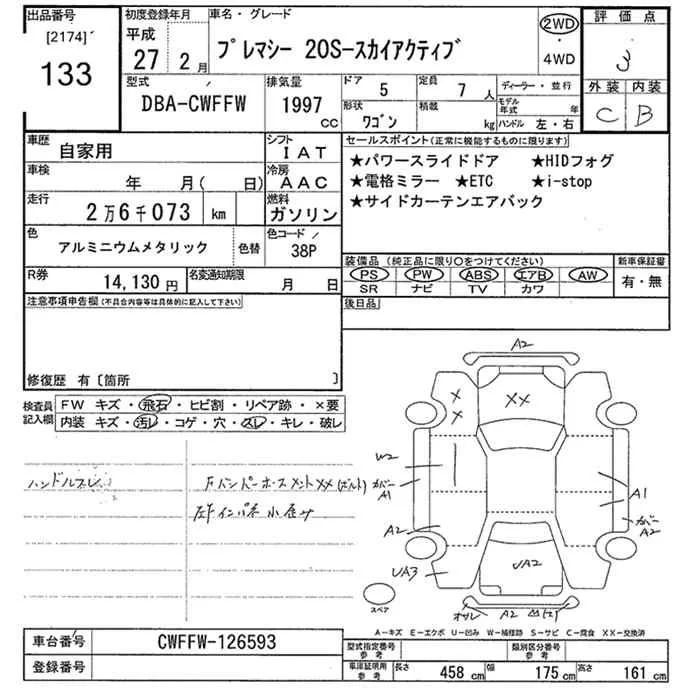 出品番号
[2174]
133
初度登録年月
平成
27 2月
車名・グレード
プレマシー 20S-スカイアクティブ
2WD
・
4WD
評価点
3
外装 内装
C B
型式
DBA-CWFFW
排気量
1997
CC
ドア
5
定員
7 人
ディーラー・並行
形状
ワゴン
積載
kg
モデル年式 年
ハンドル 左・右
車歴
自家用
シフト
IAT
車検
年 月( 日)
冷房
AAC
走行
2万6千073 km
燃料
ガソリン
色
アルミニウムメタリック
色替
色コード
38P
R券
14,130円
名変通知期限
月 日
セールスポイント(正常に機能するものに限ります)
★パワースライドドア ★HIDフォグ
★電格ミラー ★ETC ★i-stop
★サイドカーテンエアバック
装備品(純正品に限り○をつけてください)
PS PW ABS エアB AW
SR ナビ TV カワ
新車保証書
有・無
後日品
注意事項申告欄(不具合内容等は具体的に記入して下さい)
修復歴 有〔箇所 〕
検査員記入欄
FW キズ・飛石・ヒビ割・リペア跡・×要
内装 キズ・汚レ・コゲ・穴・スレ・キレ・破レ
ハンドルスレ
Fバンパーホースメント××(ボルト)
A2
×
×
××
W2
カバー
A1
A2
UA3
UA2
A1
カバー
A2
スペア
A2
A-キズ E-エクボ U-凹み W-補修跡 S-サビ C-腐食 XX-交換済
車台番号
CWFFW-126593
登録番号
型式指定番号
参考
類別区分番号
参考
車庫証明用
参考
長さ 458 cm 幅 175 cm 高さ 161 cm